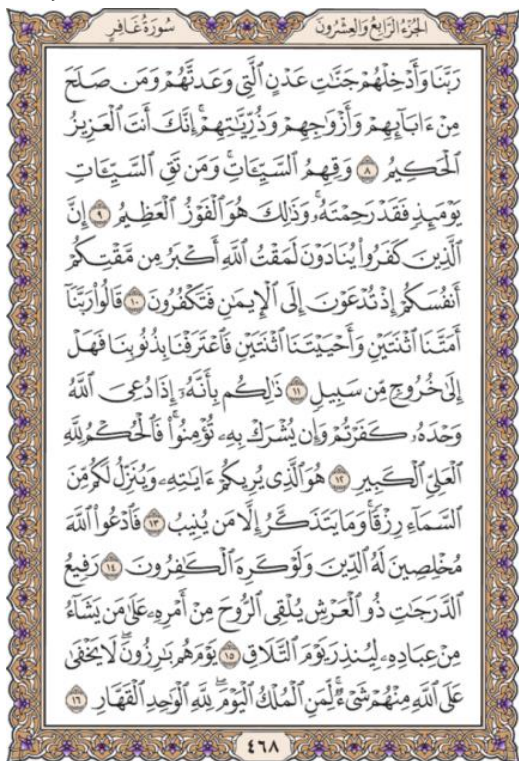 الجُزْءُ الرَّابِعُ وَالْعِشْرُونَ سُورَةُ غَافِرٍ
رَبَّنَا وَأَدْخِلْهُمْ جَنَّٰتِ عَدْنٍ ٱلَّتِى وَعَدتَّهُمْ وَمَن صَلَحَ
مِنْ ءَابَآئِهِمْ وَأَزْوَٰجِهِمْ وَذُرِّيَّٰتِهِمْ ۚ إِنَّكَ أَنتَ ٱلْعَزِيزُ
ٱلْحَكِيمُ ٨ وَقِهِمُ ٱلسَّيِّـَٔاتِ ۚ وَمَن تَقِ ٱلسَّيِّـَٔاتِ
يَوْمَئِذٍ فَقَدْ رَحِمْتَهُۥ ۚ وَذَٰلِكَ هُوَ ٱلْفَوْزُ ٱلْعَظِيمُ ٩ إِنَّ
ٱلَّذِينَ كَفَرُوا۟ يُنَادَوْنَ لَمَقْتُ ٱللَّهِ أَكْبَرُ مِن مَّقْتِكُمْ
أَنفُسَكُمْ إِذْ تُدْعَوْنَ إِلَى ٱلْإِيمَٰنِ فَتَكْفُرُونَ ١٠ قَالُوا۟ رَبَّنَآ
أَمَتَّنَا ٱثْنَتَيْنِ وَأَحْيَيْتَنَا ٱثْنَتَيْنِ فَٱعْتَرَفْنَا بِذُنُوبِنَا فَهَلْ
إِلَىٰ خُرُوجٍ مِّن سَبِيلٍ ١١ ذَٰلِكُم بِأَنَّهُۥٓ إِذَا دُعِىَ ٱللَّهُ
وَحْدَهُۥ كَفَرْتُمْ ۖ وَإِن يُشْرَكْ بِهِۦ تُؤْمِنُوا۟ ۚ فَٱلْحُكْمُ لِلَّهِ
ٱلْعَلِىِّ ٱلْكَبِيرِ ١٢ هُوَ ٱلَّذِى يُرِيكُمْ ءَايَٰتِهِۦ وَيُنَزِّلُ لَكُم مِّنَ
ٱلسَّمَآءِ رِزْقًا ۚ وَمَا يَتَذَكَّرُ إِلَّا مَن يُنِيبُ ١٣ فَٱدْعُوا۟ ٱللَّهَ
مُخْلِصِينَ لَهُ ٱلدِّينَ وَلَوْ كَرِهَ ٱلْكَٰفِرُونَ ١٤ رَفِيعُ
ٱلدَّرَجَٰتِ ذُو ٱلْعَرْشِ يُلْقِى ٱلرُّوحَ مِنْ أَمْرِهِۦ عَلَىٰ مَن يَشَآءُ
مِنْ عِبَادِهِۦ لِيُنذِرَ يَوْمَ ٱلتَّلَاقِ ١٥ يَوْمَ هُم بَٰرِزُونَ ۖ لَا يَخْفَىٰ
عَلَى ٱللَّهِ مِنْهُمْ شَىْءٌ ۚ لِّمَنِ ٱلْمُلْكُ ٱلْيَوْمَ ۖ لِلَّهِ ٱلْوَٰحِدِ ٱلْقَهَّارِ ١٦
٤٦٨